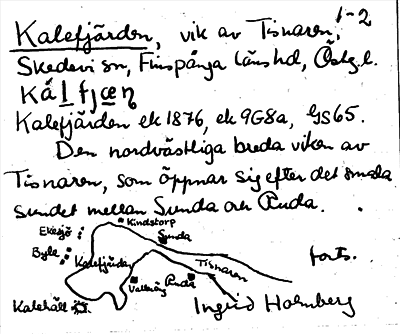 1-2
Kalefjärden, vik av Tisnaren,
Skedevi sn, Finspånga läns hd, Östg.l.
Kalefjärden ek 1876, ek 9G8a, GS65.
Den nordvästliga breda viken av
Tisnaren, som öppnar sig efter det smala
sundet mellan Sunda och Ånda.
Kindstorp
Ekesjö
Sunda
Byle
Kalefjärden
Tisnaren
forts.
Ånda
Kalehäll
Ingrid Holmberg